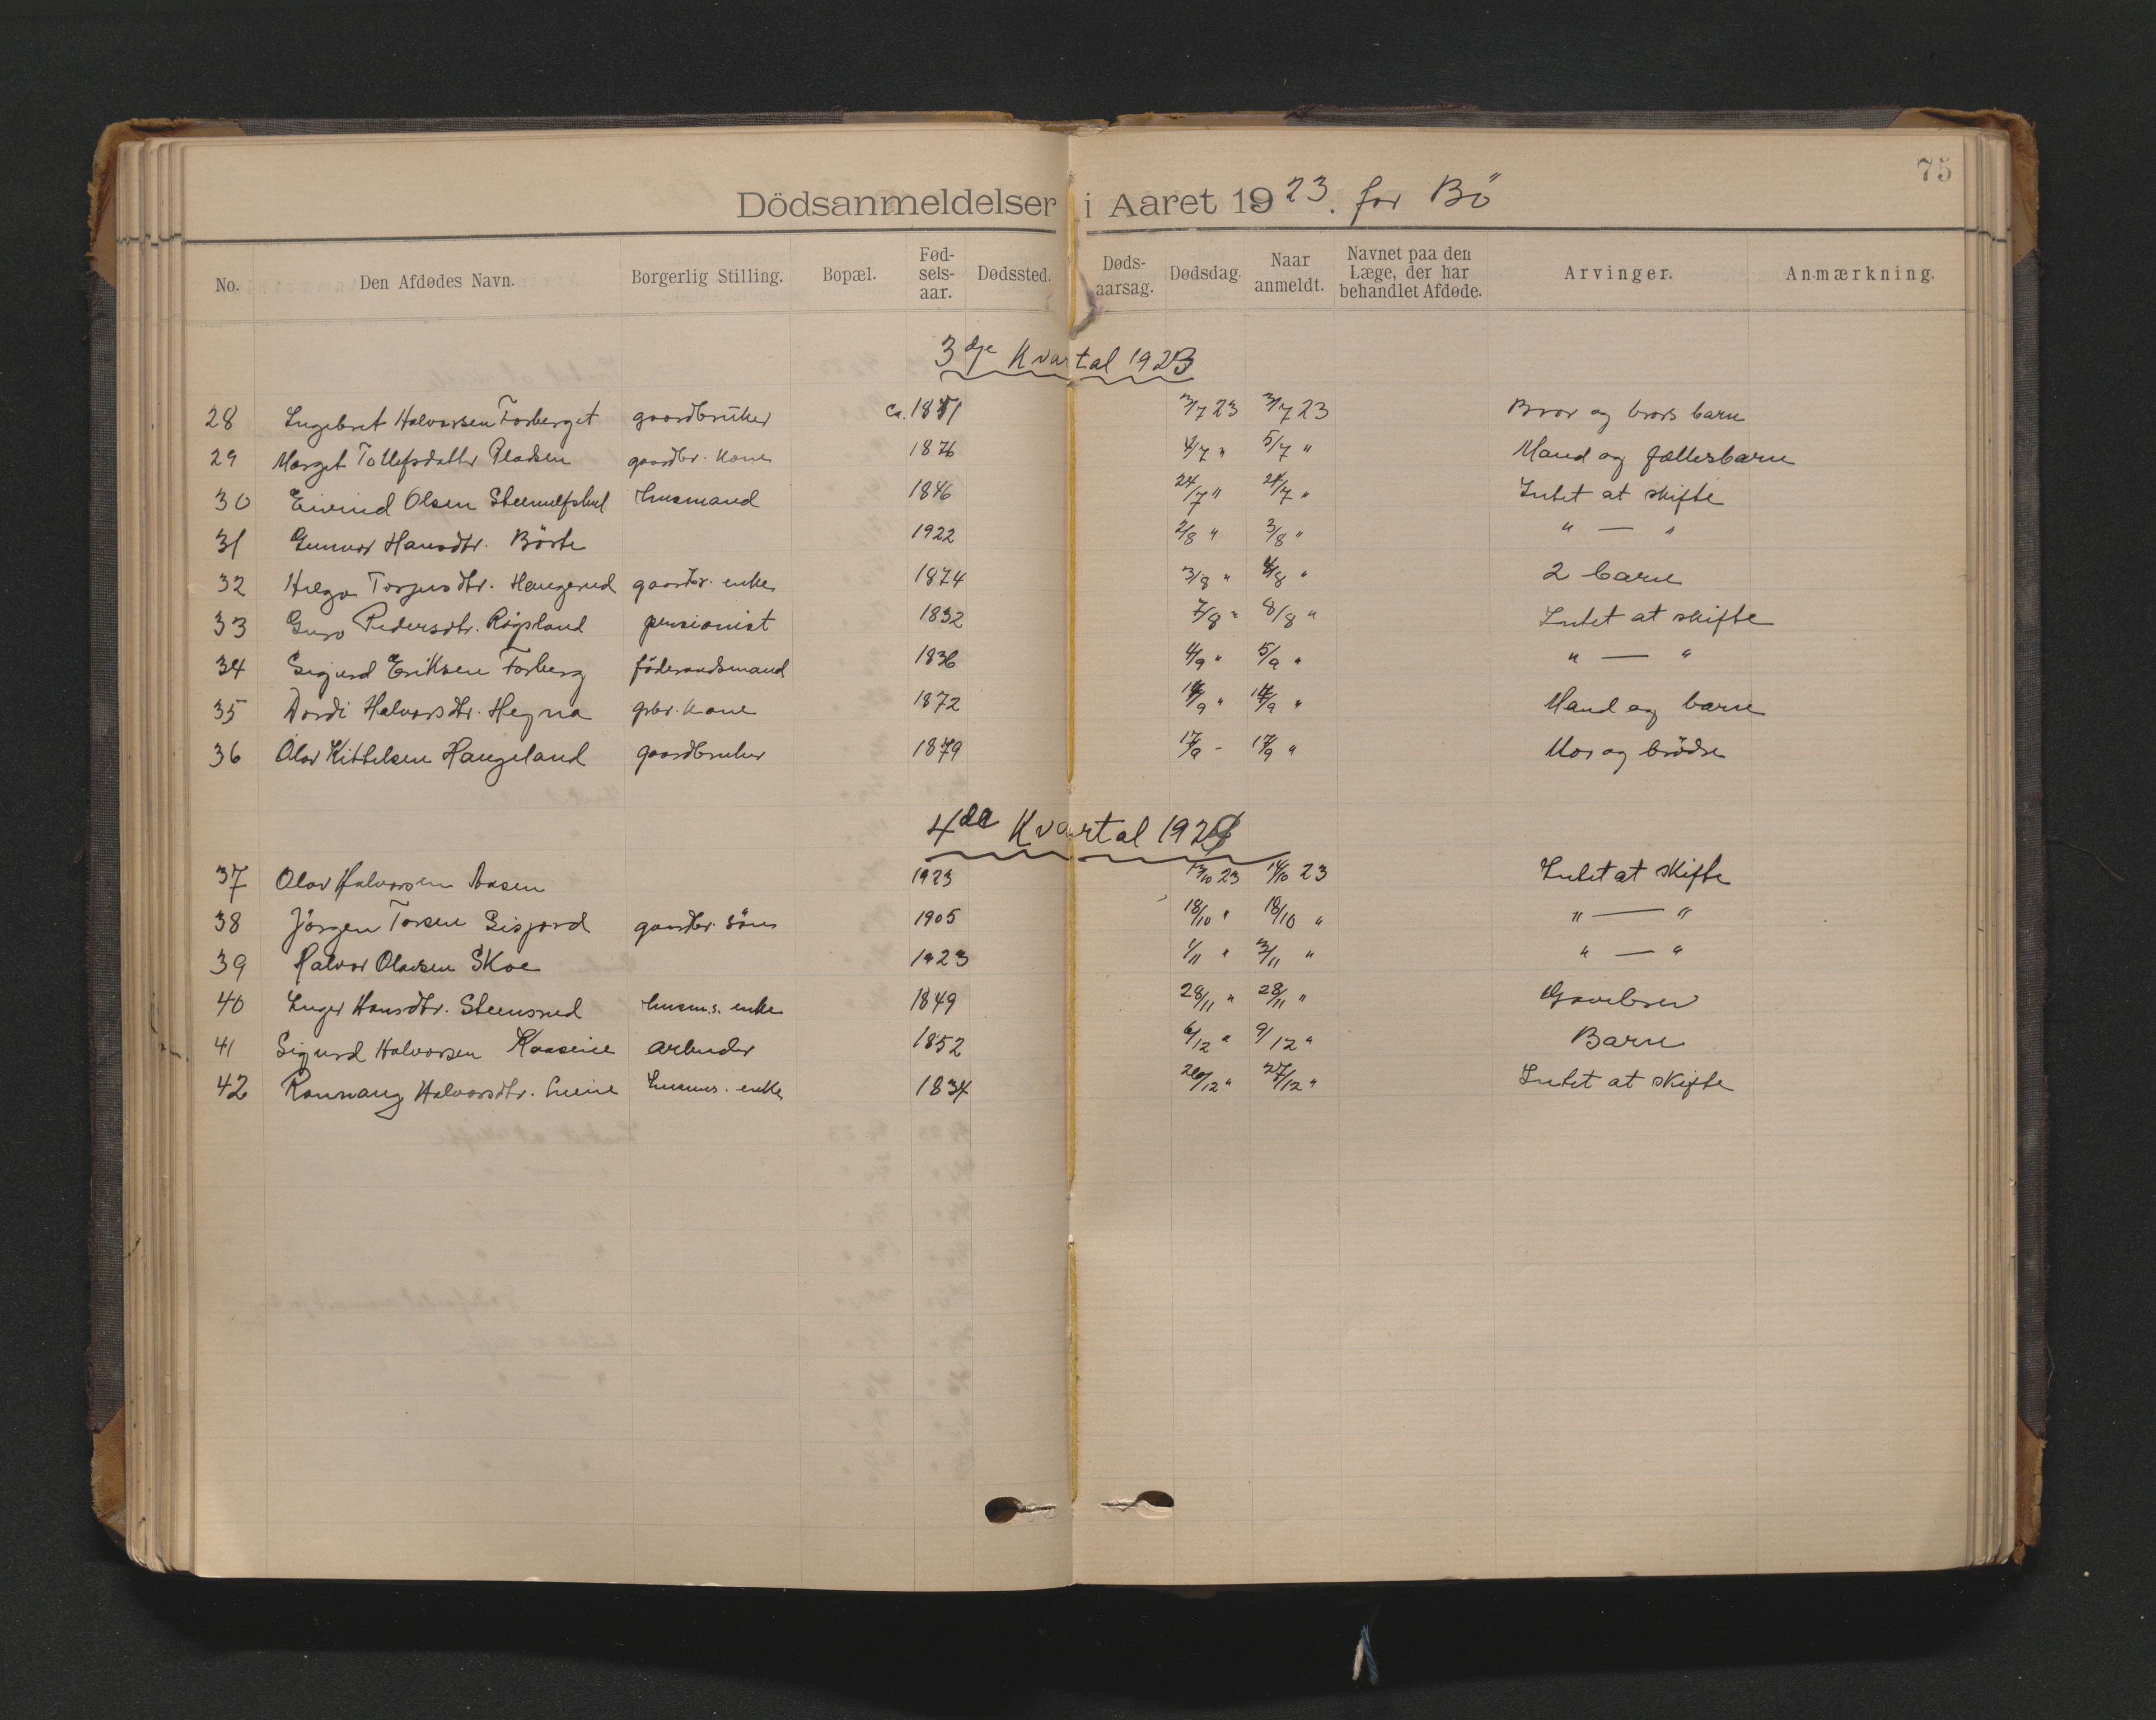 75
Dödsanmeldelser i Aaret 1923. for Bö
No. Den Afdødes Navn. Borgerlig Stilling. Bopæl. Fød-sels-aar. Dødssted. Døds-aarsag. Dødsdag. Naar anmeldt. Navnet paa den Læge, der har behandlet Afdøde. Arvinger. Anmærkning.
3dje Kvartal 1923
28 Ingebret Halvorsen Forberget gaardbruker ca. 1851 3/7 23 3/7 23 Bror og brors barn
29 Marget Tollefsdatter gaardbr. kone 1876 4/7 " 5/7 " Mand og fællesbarn
30 Eivind Olsen husmand 1846 24/7 " 24/7 " Intet at skifte
31 Gunvor Hansdtr. Börte 1922 2/8 " 3/8 " " — "
32 Helga Torjusdtr. Haugerud gaardbr. enke 1874 3/8 " 4/8 " 2 barn
33 Guro Pedersdtr. pensionist 1832 7/8 " 8/8 " Intet at skifte
34 Sigurd Eriksen Forberg föderaadsmand 1836 4/9 " 5/9 " " — "
35 Dordi Halvorsdtr. Hegna gbr. kone 1872 14/9 " 14/9 " Mand og barn
36 Olav Kittelsen Haugeland gaardbruker 1879 17/9 - 17/9 " Mor og brödre
4de Kvartal 1923
37 Olav Halvorsen Aasen 1923 13/10 23 14/10 23 Intet at skifte
38 Jörgen Torsen Gisjord gaardbr. söns 1905 18/10 " 18/10 " " — "
39 Halvor Olavsen Skoe 1923 1/11 " 3/11 " " — "
40 Inger Hansdtr. Steensrud husm.s. enke 1849 28/11 " 28/11 " Gavebrev
41 Sigurd Halvorsen arbeider 1852 6/12 " 9/12 " Barn
42 Rannaug Halvorsdtr. husms. enke 1834 26/12 " 27/12 " Intet at skifte